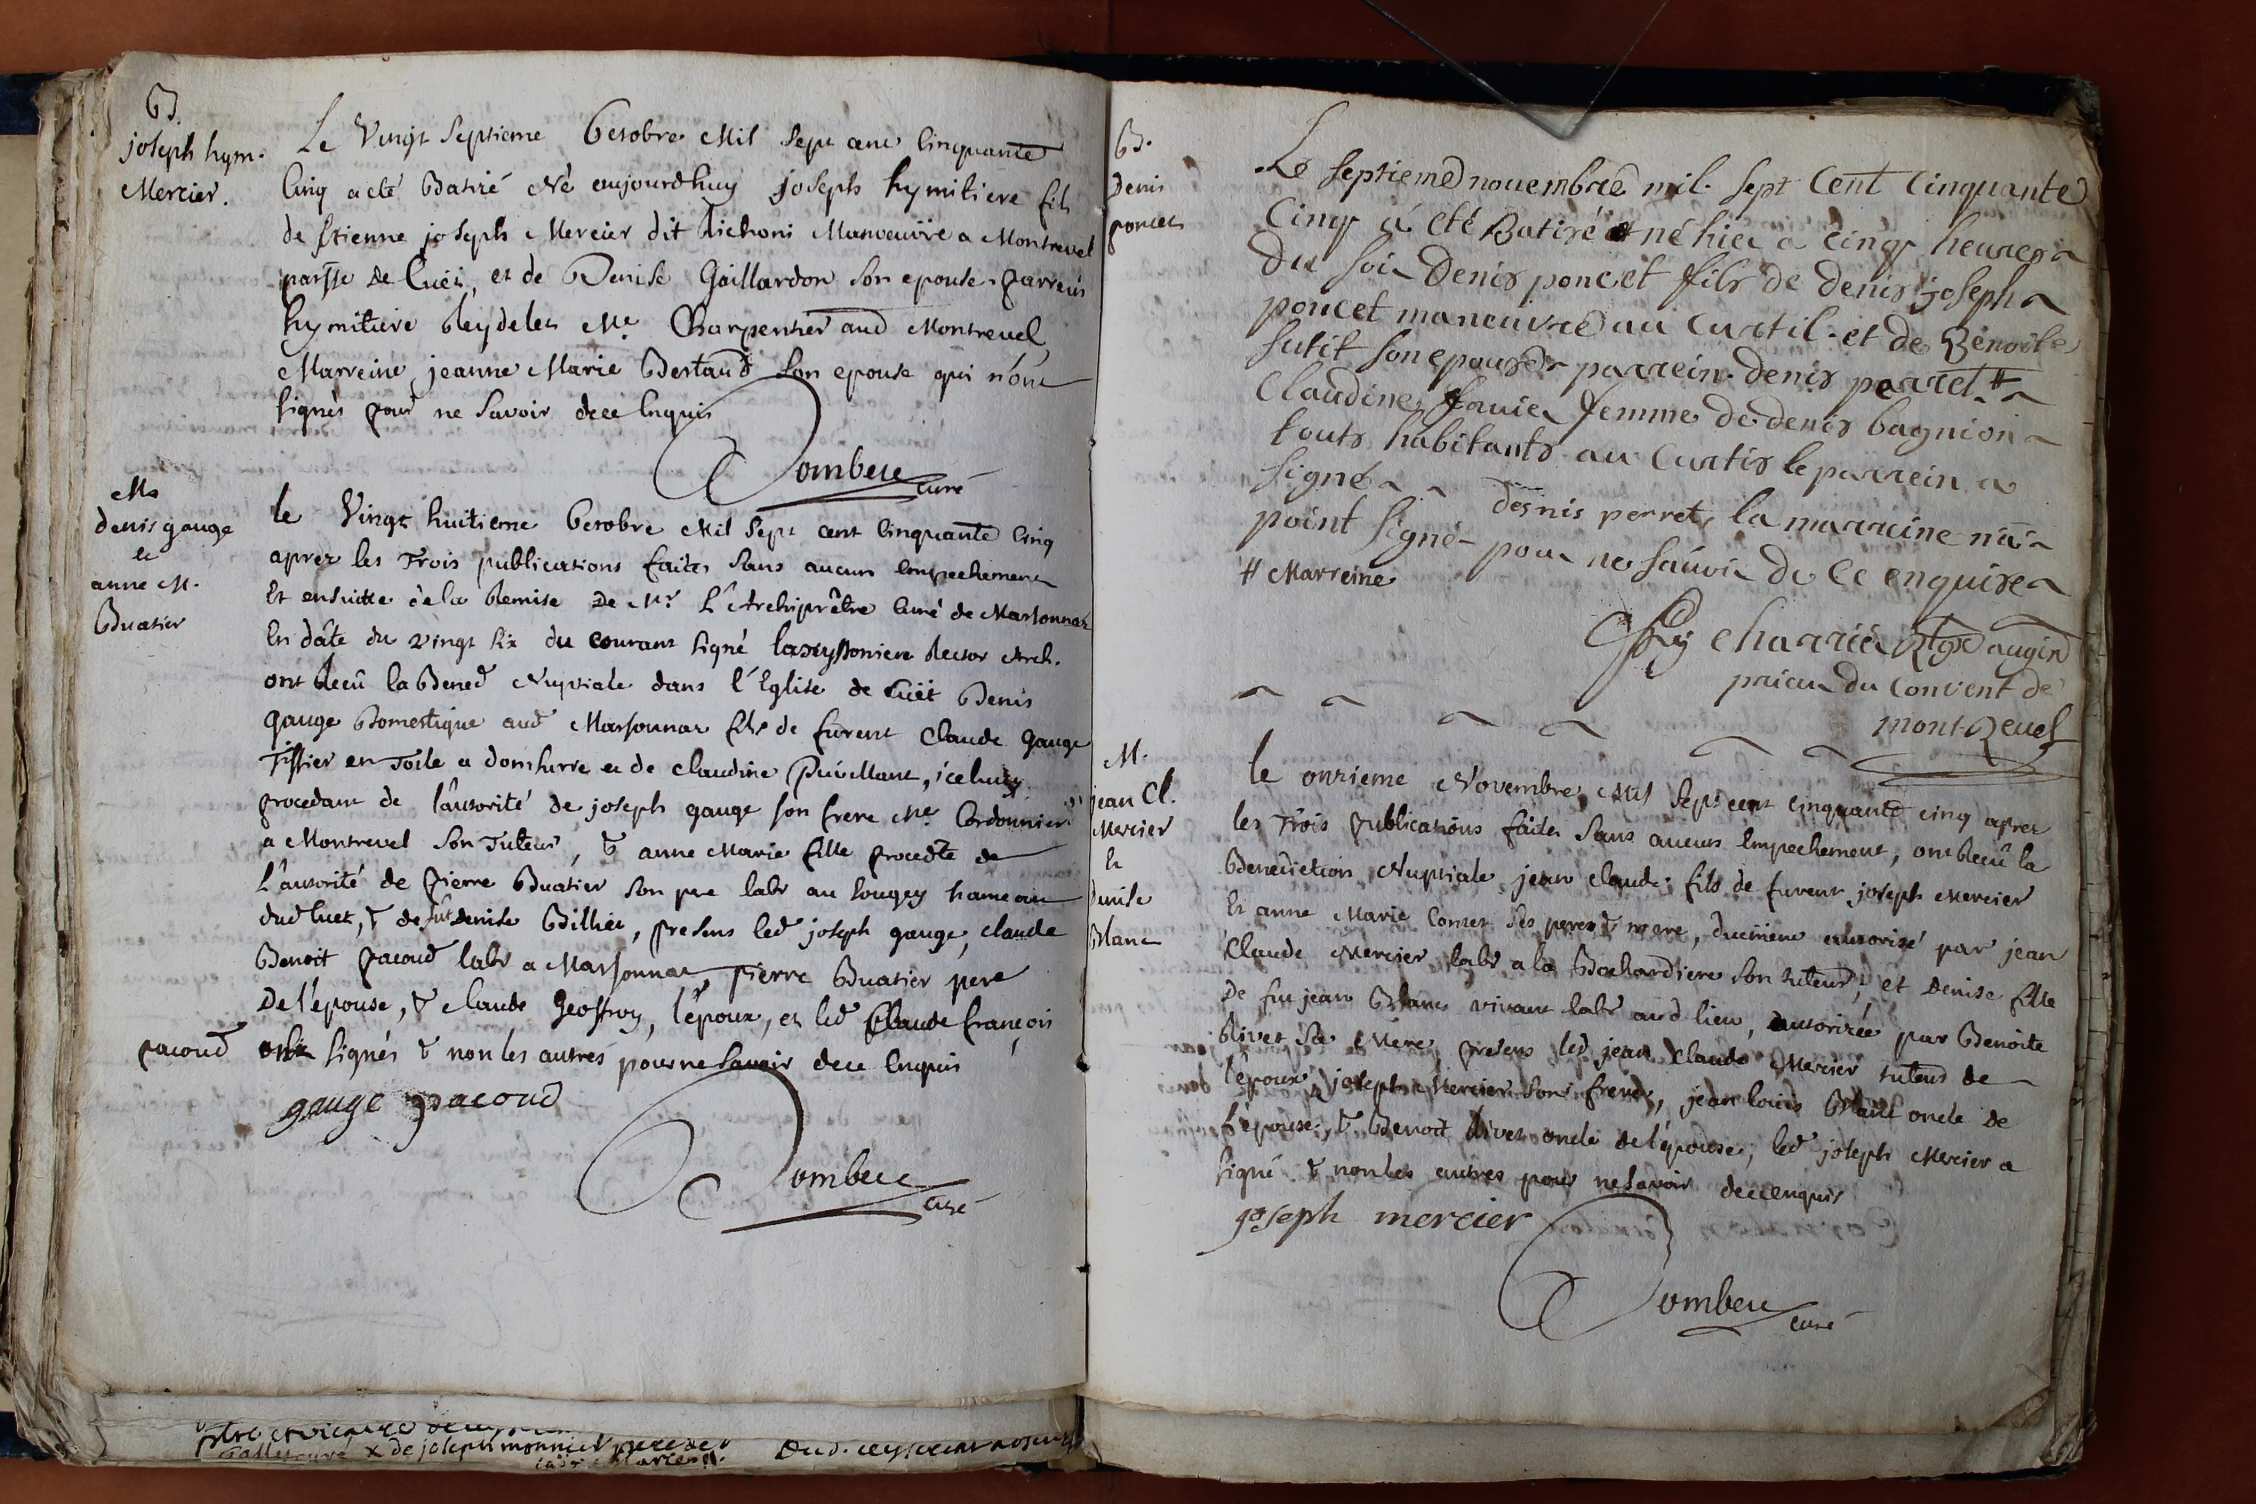 B.
joseph hym.
Mercier.
Le Vingt Septieme 6ctobre Mil Sept cent Cinquante
Cinq a eté Batizé Né aujourdhuy joseph hymitiere fils
de Etienne joseph Mercier dit Michoni Manoeuvre a Montrevel
parsse De Cuët, et de Denise Gaillardon son epouse. Parrein
hymitiere Reydelet Me. Charpentier aud Montrevel,
Marreine jeanne Marie Bertaud son epouse qui n'ont
signés pour ne Savoir dece Enquis
Dombeu curé
M.
denis gauge
et
anne M.
Buatier
le Vingt huitieme 6ctobre Mil Sept cent Cinquante Cinq
aprez les Trois publications faites Sans aucun Empechement
Et ensuitte de la Remise De Mr. L'Archiprêtre Curé de Marsonnaz
En dâte du vingt Six du courant Signé Rector Arch.
ont Receû la Bened Nuptiale dans l'Eglise de Cuët Denis
gauge Domestique aud Marsonnaz fils de furent Claude gauge
Tissier en Toile a domsurre et de claudine Puivillant, icelui
procedant de l'autorité de joseph gauge son frere Me. Cordonnier
a Montrevel Son Tuteur, & anne Marie fille procedte de
L'autorité de Pierre Buatier son pere labr au Sougey hameau
dud Cuet, & de fût denise Billiet, presens led joseph gauge, claude
Benoit Pacoud labr a Marsonnaz, pierre Buatier pere
De l'epouse, & claude Geoffroy, l'epoux, et led Claude françois
pacoud ont signés & non les autres pour ne Savoir dece Enquis
gauge pacoud
Dombeu curé
B.
Denis
poncet
Le septieme nouembre mil. sept Cent Cinquante
Cinq a eté Batisé et né hier a cinq heures
Du soir Denis poncet fils de denis joseph
poncet maneuvre au Curtil. et de Benoite
Sutit son epouse parrein. denis perret #
Claudine favier femme de denis bagnion
touts habitants au Curtis le parrein a
signé desnis perret, la marraine n'a
point signé pour ne sauoir de ce enquise
# Marreine
charrié Rtgx augin
prieur du Convent de
mont-Revel
M.
jean Cl.
Mercier
Et
denise
Blanc
le onzieme Novembre Mil Sept cent cinquante cinq aprez
les Trois publications faites Sans aucun Empechement, ont Receû la
Benediction Nuptiale jean claude fils de furent joseph Mercier
Et anne Marie Comet ses pere & mere, duëment autorisé par jean
Claude Mercier labr a la Bochardiere son tuteur, et denise fille
De fut jean Blanc vivant labr aud lieu, autorizée par Benoite
Rivet Sa Mere, presens led jean claude Mercier tuteur de
l'epoux, joseph Mercier son frere, jean louis Blanc oncle de
l'epouse, & Benoit Rivet oncle de l'epouse, led joseph Mercier a
signé & non les autres pour ne Savoir dece enquis
joseph mercier
Dombeu curé